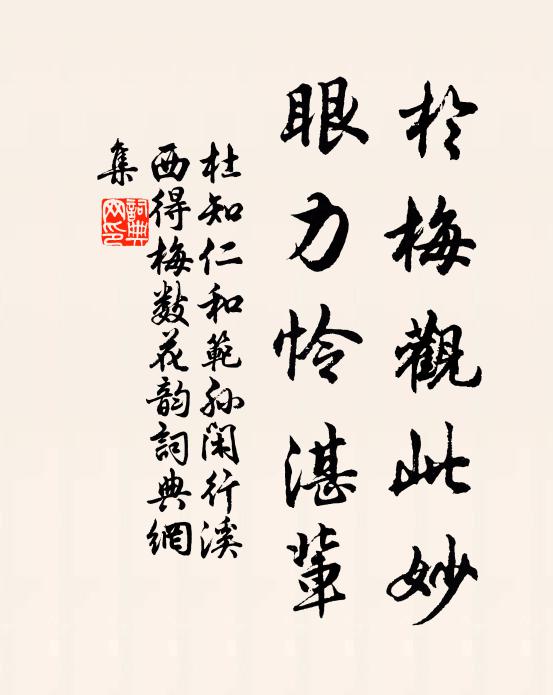 於梅觀此妙
眼力怜湛輩
杜知仁和範孫閑行溪
西得梅數花韵詞典網
集
詞典
网印